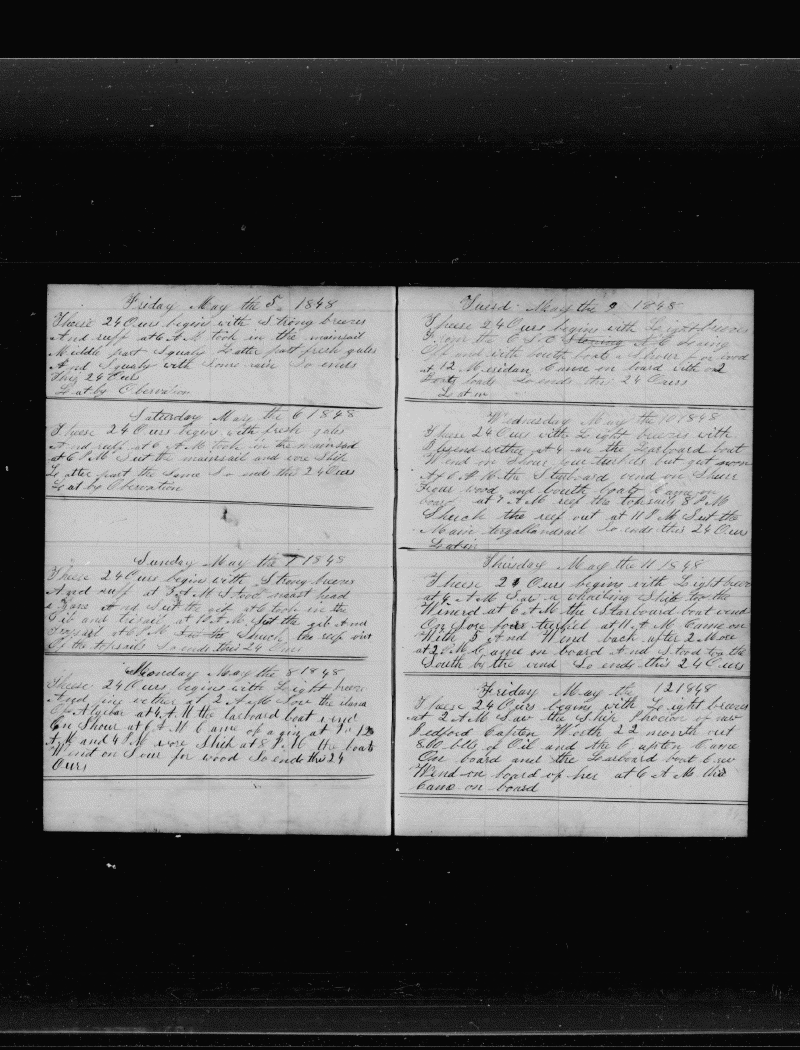 Friday May the 5, 1848
Theese 24 Ours begins with Strong breezes
And ruff at 6 A M took in the mainsail
Middle part Squaly Latter part fresh gales
And Squaly with Some rain So ends
this 24 Ours
Lat by Obervation
Saturday May the 6 1848
Theese 24 Ours begins with fresh gales
And ruff at 6 A M took in the mainsail
at 6 P M Sut the mainsail and wore Ship
Latter part the Same So ends this 24 Ours
Lat by Obervation
Sunday May the 7 1848
Theese 24 Ours begin with Strong breezes
And ruff at 5 A M Stood mast head
And Sut the gib at 6 took in the
Gib and at 10 A M Sut the gib And
at 6 P M Shuck the reef out
Of the topsails So ends this 24 Ours
Monday May the 8 1848
Theese 24 Ours begins with Light breezes
And fine wether at 2 A M Saw the iland
Of at 4 A M the larboard boat wend
On Shour at 6 A M Came of a gin at 12
A M and 4 P M wore Ship at 8 P M the boats
Wend on Sour for wood So ends this 24
Ours
Tuesd May the 9 1848
Theese 24 Ours begins with Light breezes
From the E S E
Off and with bouth boats a Shour for wood
at 12 Meridian Came on board with 2
boats loads So ends this 24 Ours
Lat in
Wednesday May the 10 1848
Theese 24 Ours with Light breezes with
wether at 4 am the Larboard boat
Wend on Shour for turkels but got non
At 6 A M the Starboard wend on Shour
Fiour wood and bouth boats Came on
board at 7 A M reef the topsails 8 P M
Shuck the reef out at 11 P M Sut the
Main So ends this 24 Ours
Lat in
Thirsday May the 11 1848
Theese 24 Ours begins with Light breezes
at 4 A M Saw a whaling Ship to the
Winerd at 6 A M the Starboard boat wend
On Sore for turkel at 11 A M Came on
With 5 And Wend back after 2 More
at 2 P M Came on board And Stood to the
South by the wind So ends this 24 Ours
Friday May the 12 1848
Theese 24 Ours begins with Light breezes
at 2 A M Saw the Ship Phocion of nuw
Bedford Capton Worth 22 month out
800 bbls of Oil and the Capton Came
On board and the Larboard boat Cruw
Wend on board of her at 6 A M the
Came on board